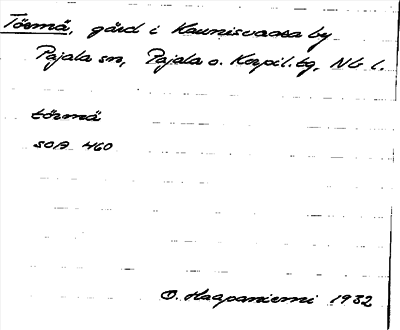 Törmä, gård i Kaunisvaara by
Pajala sn, Pajala o. Korpil. tg, Nb l.
törmä
SOA 460
O. Haapaniemi 1932